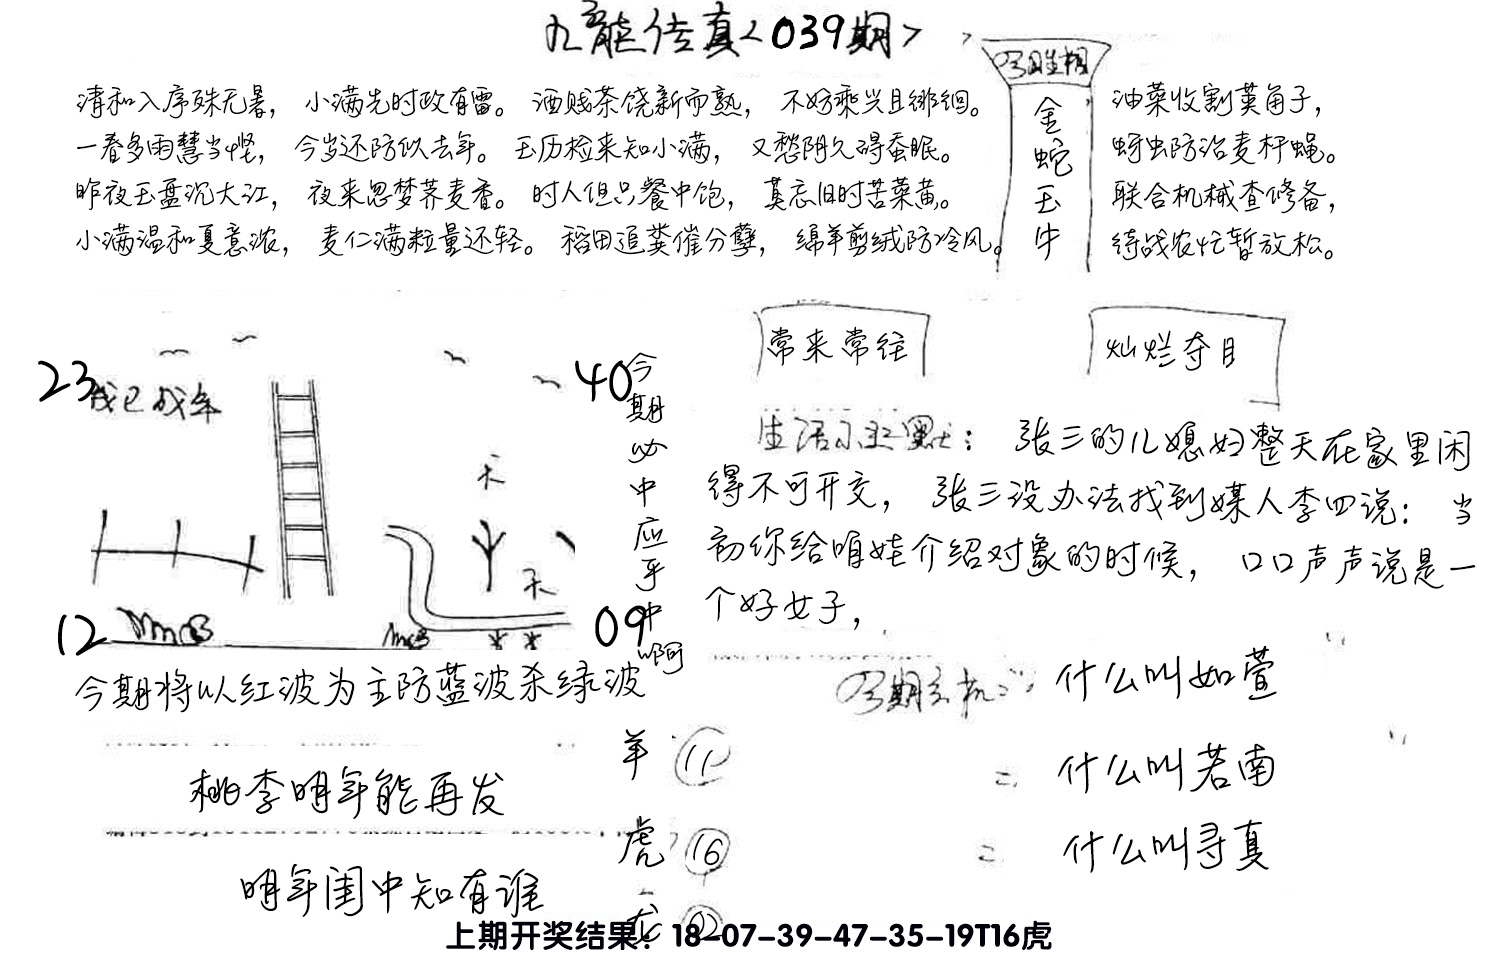 九龙传真<039期>
今日生相
金蛇玉牛
清和入序殊无暑， 小满先时政有雷。 酒贱茶饶新而熟， 不妨乘兴且徘徊。 油菜收割荚角子，
一春多雨慧当悭， 今岁还防似去年。 玉历检来知小满， 又愁阴久碍蚕眠。 蚜虫防治麦杆蝇。
昨夜玉盘沉大江， 夜来思梦荞麦香。 时人但只餐中饱， 莫忘旧时苦菜黄。 联合机械查修备，
小满温和夏意浓， 麦仁满粒量还轻。 稻田追粪催分孽， 绵羊剪绒防冷风。 待战农忙暂放松。
常来常往
灿烂夺目
23
40
12
09
今期必中应乎中啊
张三的儿媳妇整天在家里闲
得不可开交， 张三没办法找到媒人李四说： 当
初你给咱娃介绍对象的时候， 口口声声说是一
个好女子，
今期将以红波为主防蓝波杀绿波
桃李明年能再发
明年闺中知有谁
羊 11
虎 16
龙 02
今期玄机
什么叫如萱
= 什么叫若南
= 什么叫寻真
上期开奖结果：18-07-39-47-35-19T16虎